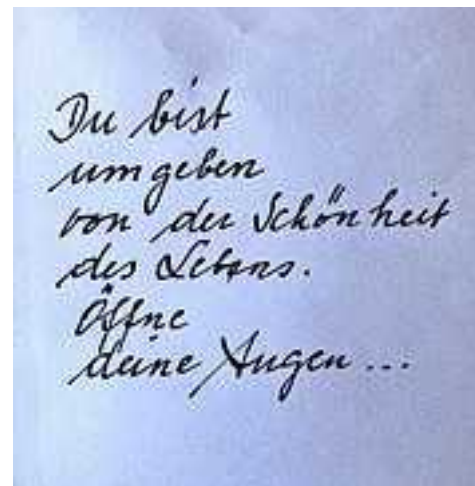 Du bist
umgeben
von der Schönheit
des Lebens.
Öffne
deine Augen...